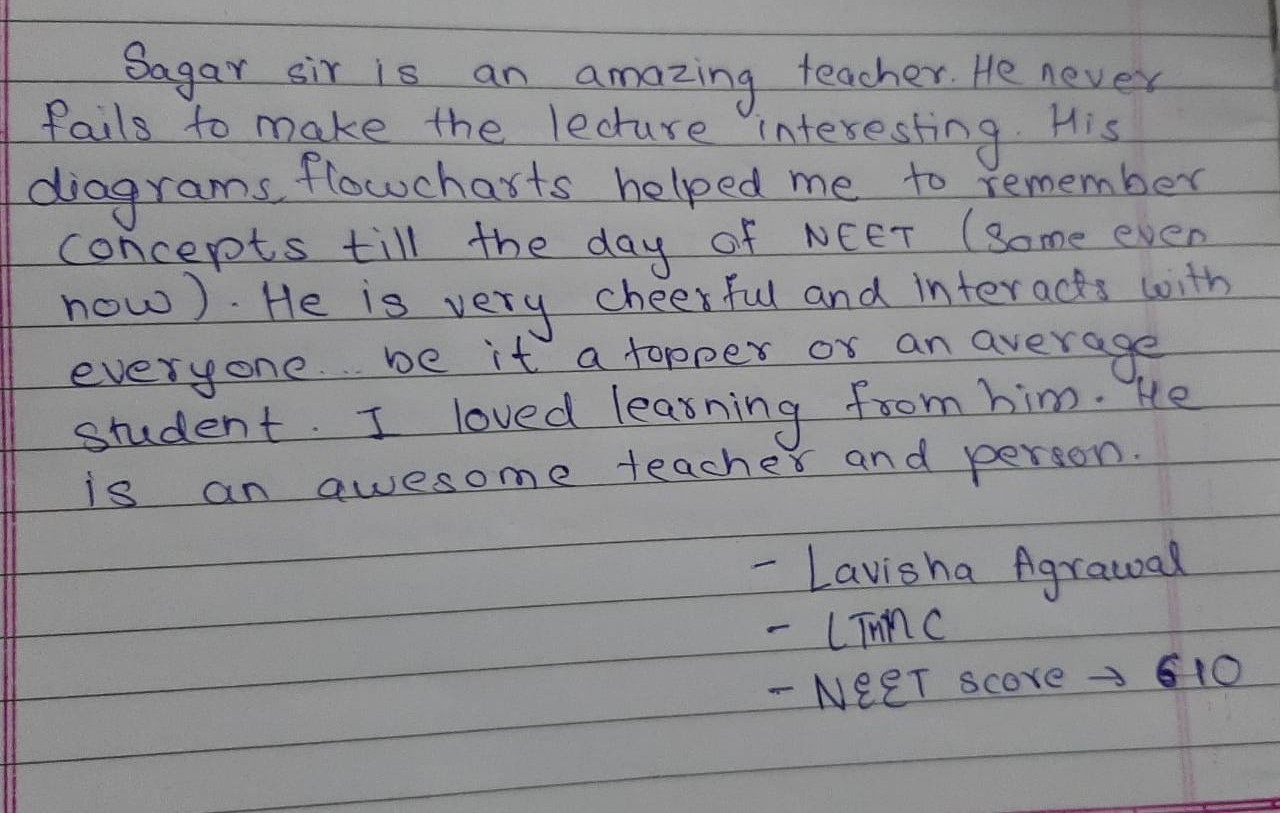 Sagar sir is an amazing teacher. He never
fails to make the lecture interesting. His
diagrams, flowcharts helped me to remember
concepts till the day of NEET (Some even
now). He is very cheerful and interacts with
everyone... be it a topper or an average
student. I loved learning from him. He
is an awesome teacher and person.
- Lavisha Agrawal
- LTMMC
- NEET score → 610